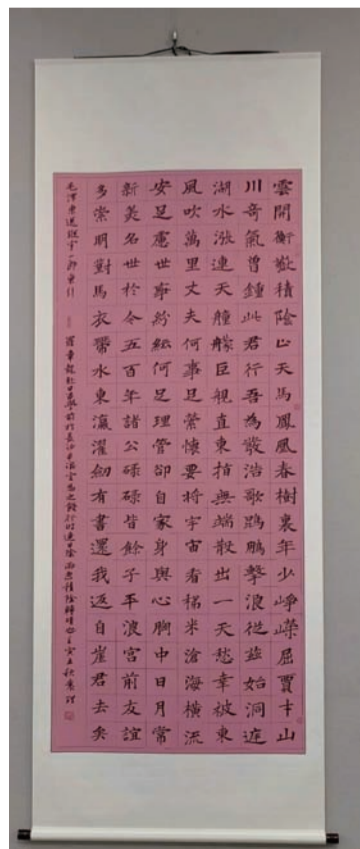 雲開衡嶽積陰止天馬鳳凰春樹裏年少崢嶸屈賈才山
川奇氣曾鍾此君行吾為發浩歌鵾鵬擊浪從茲始洞庭
湖水漲連天艟艨巨艦直東指無端散出一天愁幸被東
風吹萬里丈夫何事足縈懷要將宇宙看稊米滄海橫流
安足慮世事紛紜何足理管卻自家身與心胸中日月常
新美名世於今五百年諸公碌碌皆餘子平浪宮前友誼
多崇明對馬衣帶水東瀛濯劍有書還我返自崖君去矣
毛澤東送縱宇一郎東行 羅章龍赴日